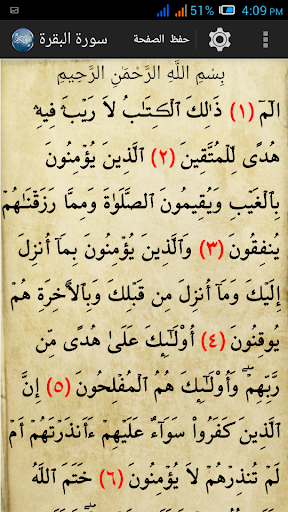 51% 4:09 PM
سورة البقرة حفظ الصفحة
بِسْمِ اللَّهِ الرَّحْمَنِ الرَّحِيمِ
الٓمٓ (١) ذَٰلِكَ ٱلْكِتَٰبُ لَا رَيْبَ فِيهِ
هُدًى لِّلْمُتَّقِينَ (٢) ٱلَّذِينَ يُؤْمِنُونَ
بِٱلْغَيْبِ وَيُقِيمُونَ ٱلصَّلَوٰةَ وَمِمَّا رَزَقْنَٰهُمْ
يُنفِقُونَ (٣) وَٱلَّذِينَ يُؤْمِنُونَ بِمَآ أُنزِلَ
إِلَيْكَ وَمَآ أُنزِلَ مِن قَبْلِكَ وَبِٱلْأَخِرَةِ هُمْ
يُوقِنُونَ (٤) أُوْلَٰٓئِكَ عَلَىٰ هُدًى مِّن
رَّبِّهِمْ ۖ وَأُوْلَٰٓئِكَ هُمُ ٱلْمُفْلِحُونَ (٥) إِنَّ
ٱلَّذِينَ كَفَرُوا۟ سَوَآءٌ عَلَيْهِمْ ءَأَنذَرْتَهُمْ أَمْ
لَمْ تُنذِرْهُمْ لَا يُؤْمِنُونَ (٦) خَتَمَ ٱللَّهُ